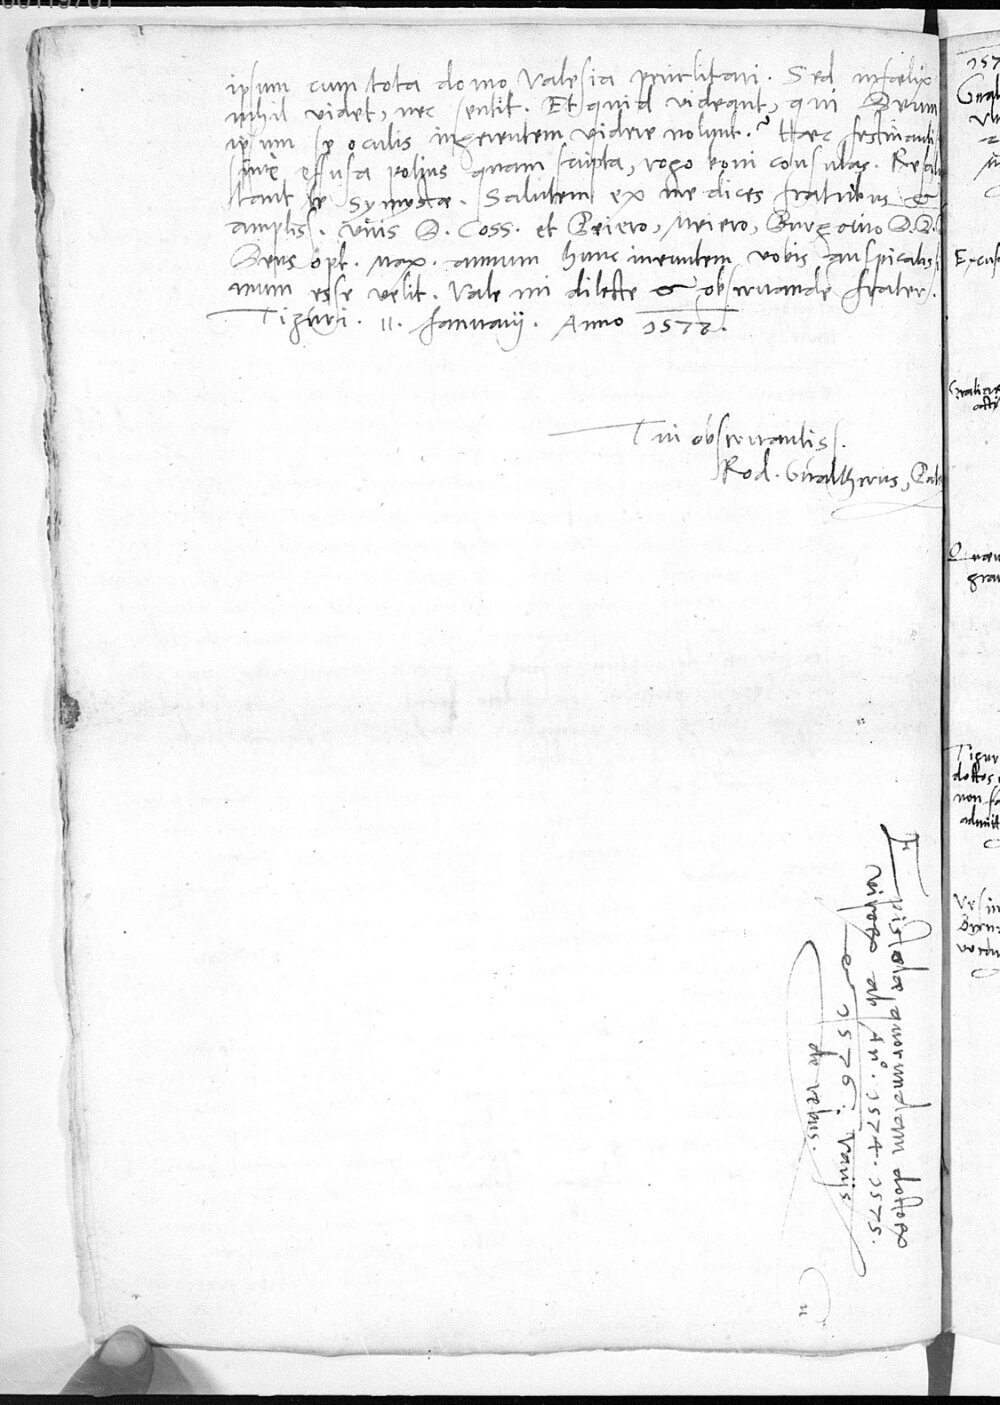 ipsum cum tota domo Valesia periclitari. Sed infœlix
nihil videt, nec sentit. Et quid videant, qui Deum
ipsum se oculis ingerentem videre nolunt.? Hæc festinanti
effusa potius quam scripta, rogo boni consulas. Resal
tant te Symystæ. Salutem ex me dices fratribus &
ampliss. viris D. Coss. et Beiero, Meiero, Burgoino D.D.
Deus opt. max. annum hunc ineuntem vobis auspicatiss
mum esse velit. Vale mi dilecte & observande frater.
Tiguri. 11. Januarij. Anno
Tui observantiss.
Rod. Gualtherus,
Epistolæ quorundam doctor
ab Anº. 1574. 1575.
e 1576. varijs
de rebus.
157
Excus
grau
Tigur
doctos
non fa
admitt
Vrsin